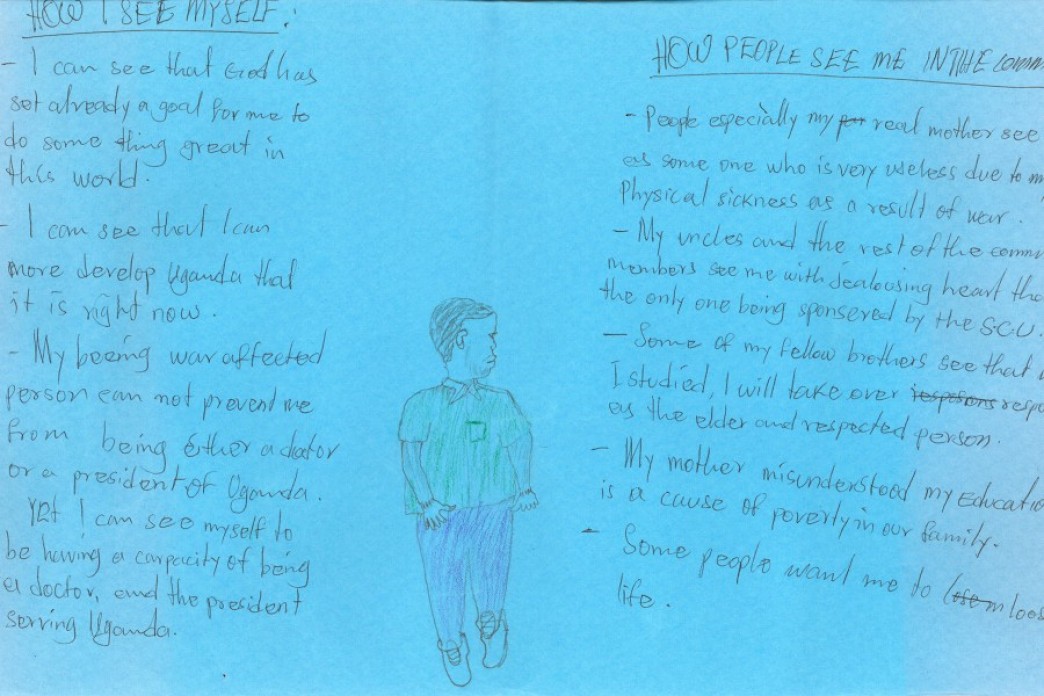 HOW I SEE MYSELF.
- I can see that God has
set already a goal for me to
do some thing great in
this world.
- I can see that I can
more develop Uganda that
it is right now.
- My beeing war affected
person can not prevent me
from being either a doctor
or a president of Uganda.
Yet I can see myself to
be having a carpacity of being
a doctor, and the president
serving Uganda.
HOW PEOPLE SEE ME IN THE
- People especially my real mother see
as some one who is very useless due to
Physical sickness as a result of war.
- My uncles and the rest of the
members see me with Jealousing heart
the only one being sponsered by the S.C.U.
- Some of my fellow brothers see that
I studied, I will take over
as the elder and respected person.
- My mother misunderstood my
is a cause of poverty in our family.
- Some people want me to
life.